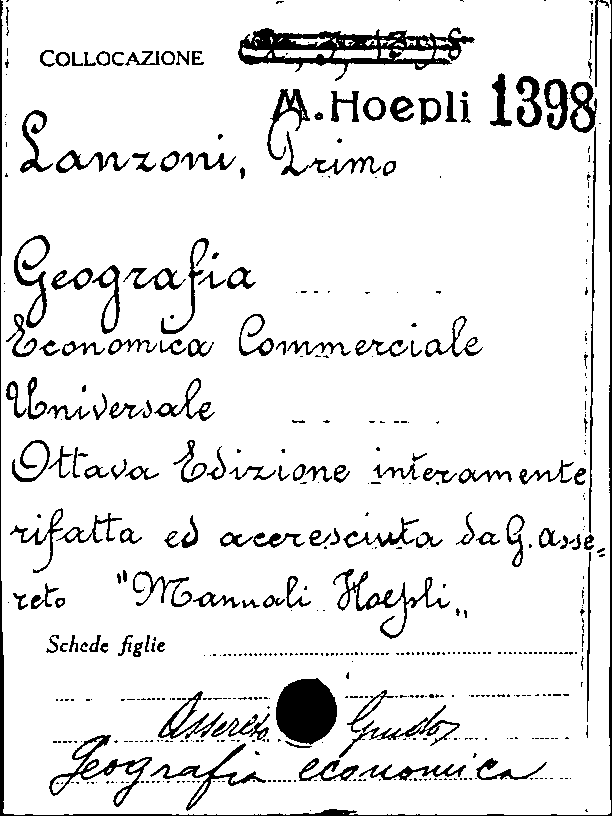 COLLOCAZIONE
M. Hoepli 1398
Lanzoni, Primo
Geografia
Economica Commerciale
Universale
Ottava Edizione interamente
rifatta ed accresciuta da G. Asse=
reto "Manuali Hoepli„
Schede figlie
Assereto Guido,
Geografia economica